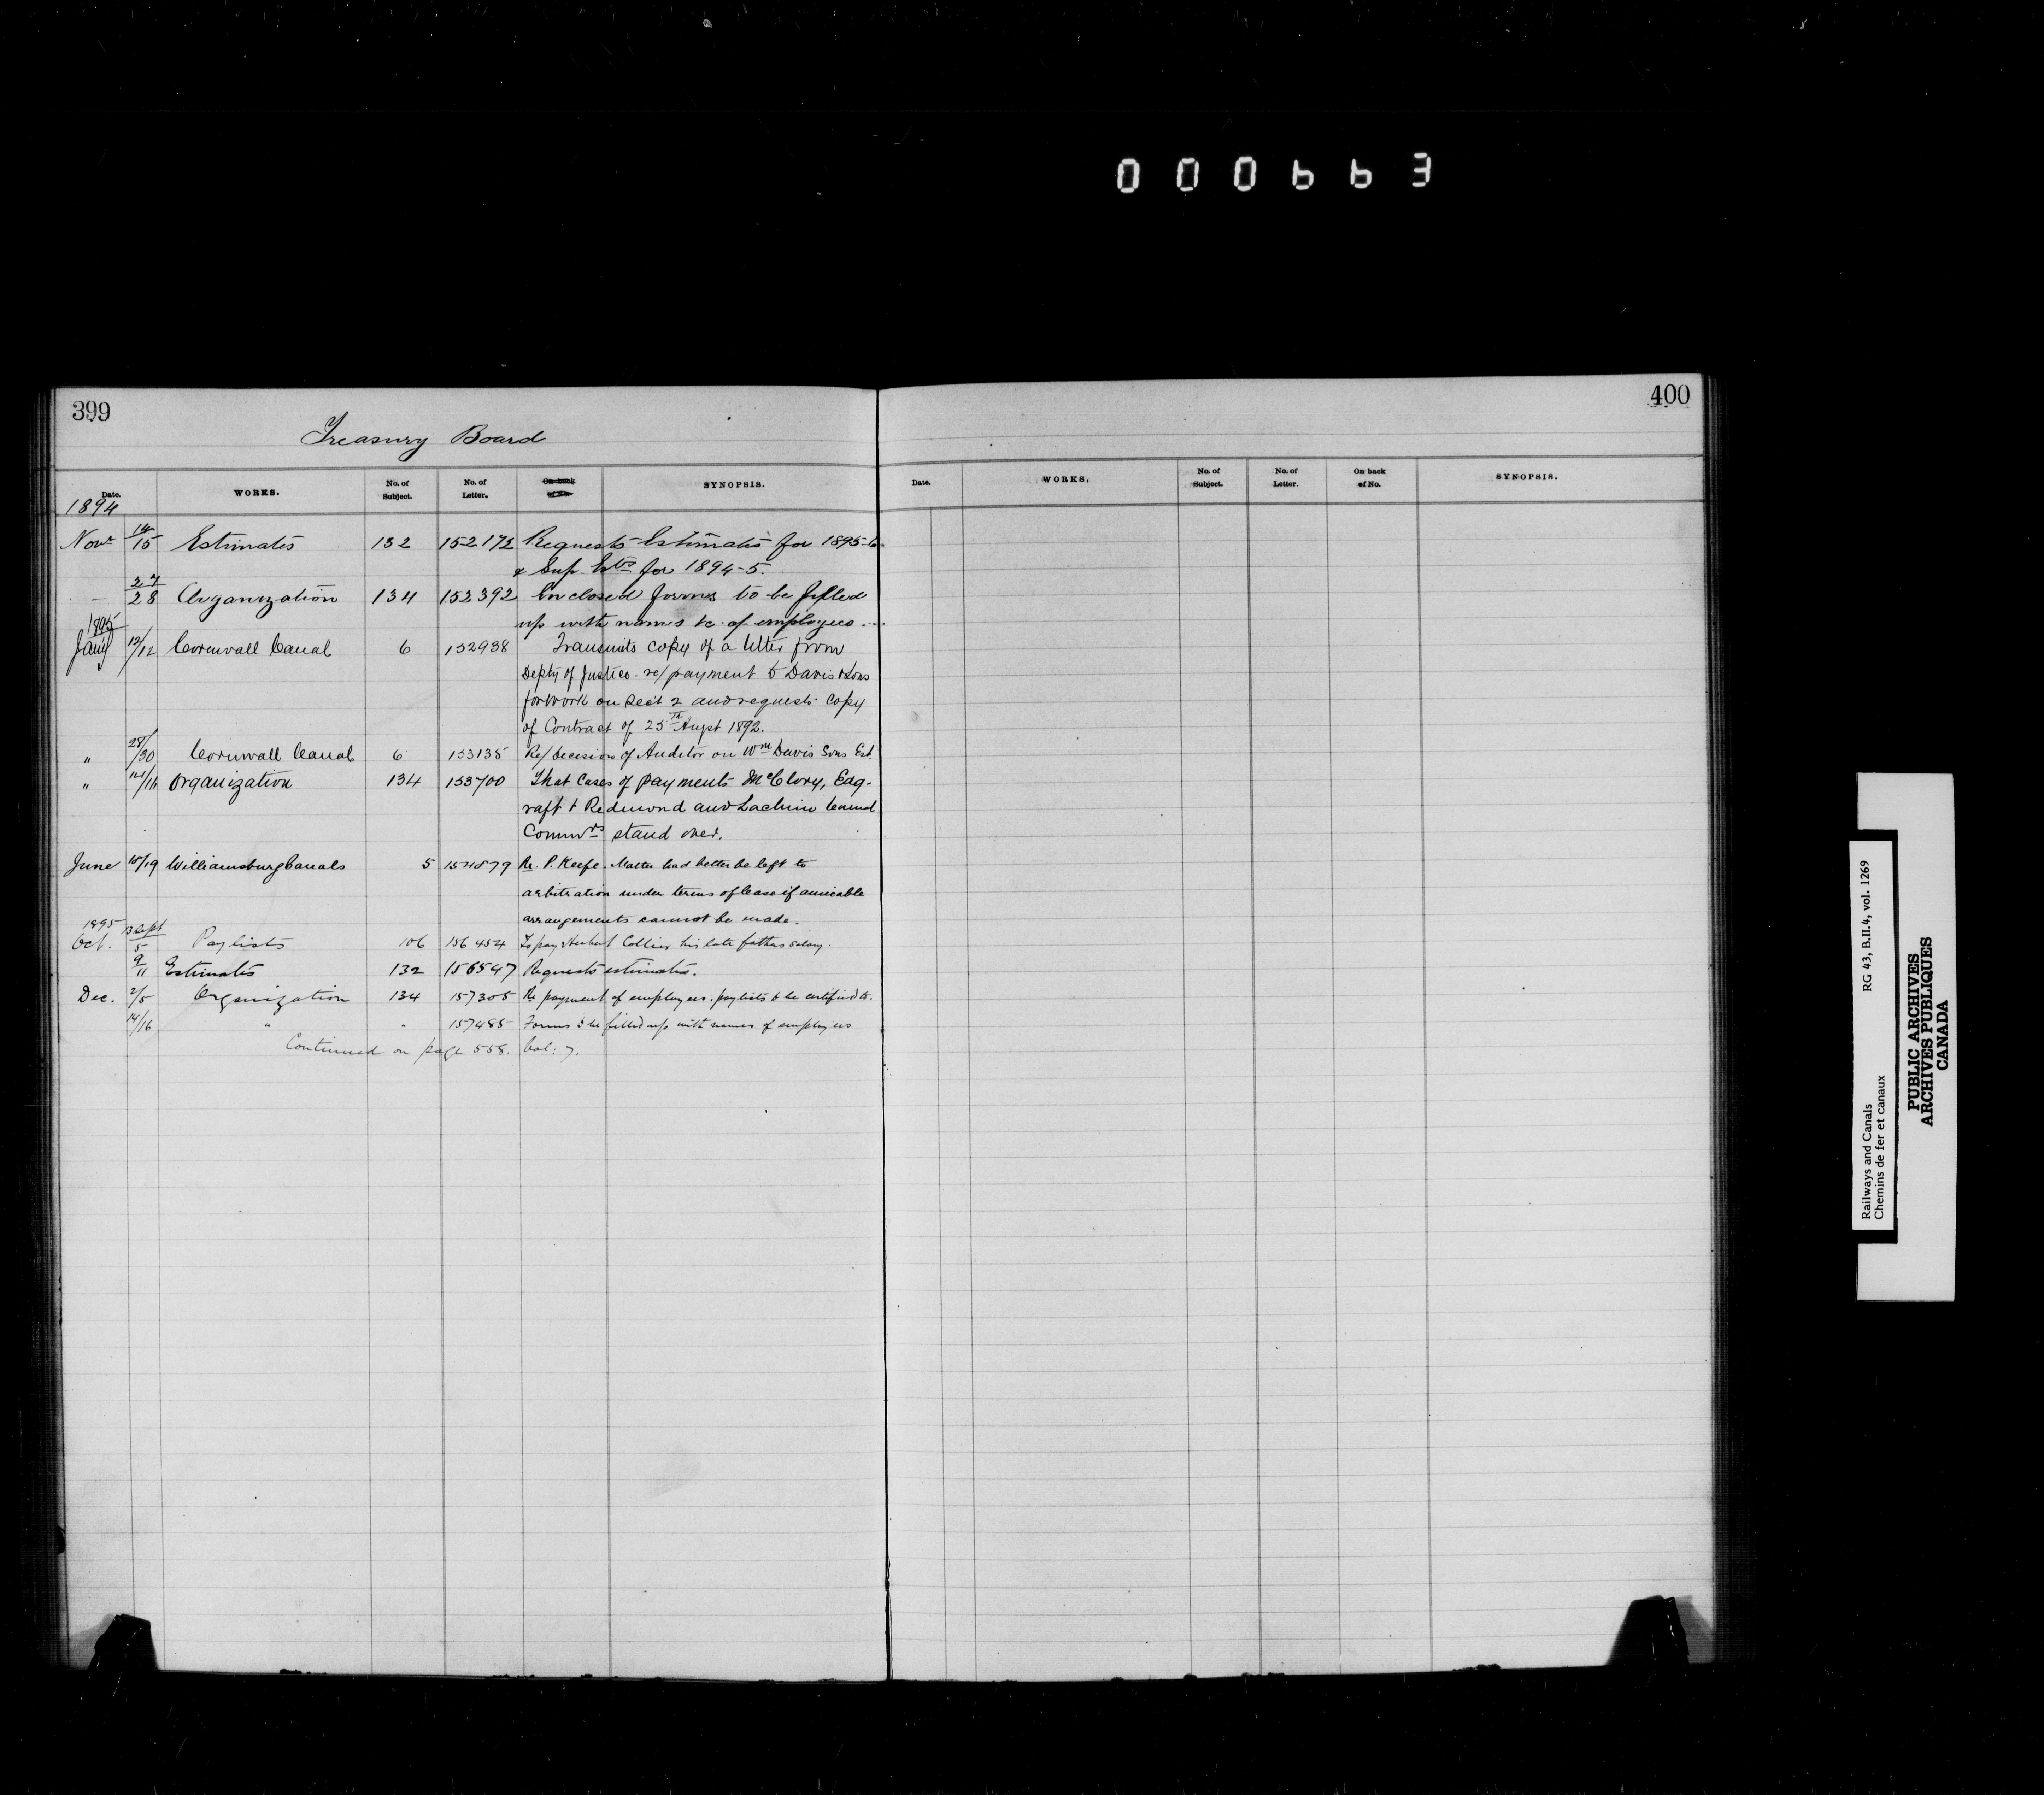 000663
399
400
Treasury Board
Date. WORKS. No. of Subject. No. of Letter. On back of No. SYNOPSIS.
Date. WORKS. No. of Subject. No. of Letter. On back of No. SYNOPSIS.
1894
Novr 14/15 Estimates 132 152172 Requests Estimates for 1895-6
& Sup. Ests for 1894-5.
— 27/28 Organization 134 152392 Enclosed forms to be filled
up with names &c. of employees.
1895
Jany 12/12 Cornwall Canal 6 152938 Transmits copy of a letter from
Depty of Justice re/ payment to Davis & Sons
for work on Sect 2 and requests copy
of Contract of 25th Augst 1892.
" 28/30 Cornwall Canal 6 153135 Re/ decision of Auditor on Wm Davis Sons Est.
" 14/16 Organization 134 153700 That Cases of payments McClory,
& Redmond and Lachine Canal
stand over.
June 18/19 Williamsburg Canals 5 154879 Re. P. Keefe. Matter had better be left to
arbitration under terms of lease if amicable
arrangements cannot be made.
1895 13 Sept
Oct. 5 Paylists 106 156454 To pay Herbert Collier his late fathers salary.
9/11 Estimates 132 156547 Requests estimates.
Dec. 2/5 Organization 134 157305 Re payment of employees. paylists to be certified to.
14/16 " " 157485 Forms to be filled up with names of employees
Continued on page 558. Vol: 7.
Railways and Canals RG 43, B.II.4, vol. 1269
Chemins de fer et canaux
PUBLIC ARCHIVES
ARCHIVES PUBLIQUES
CANADA